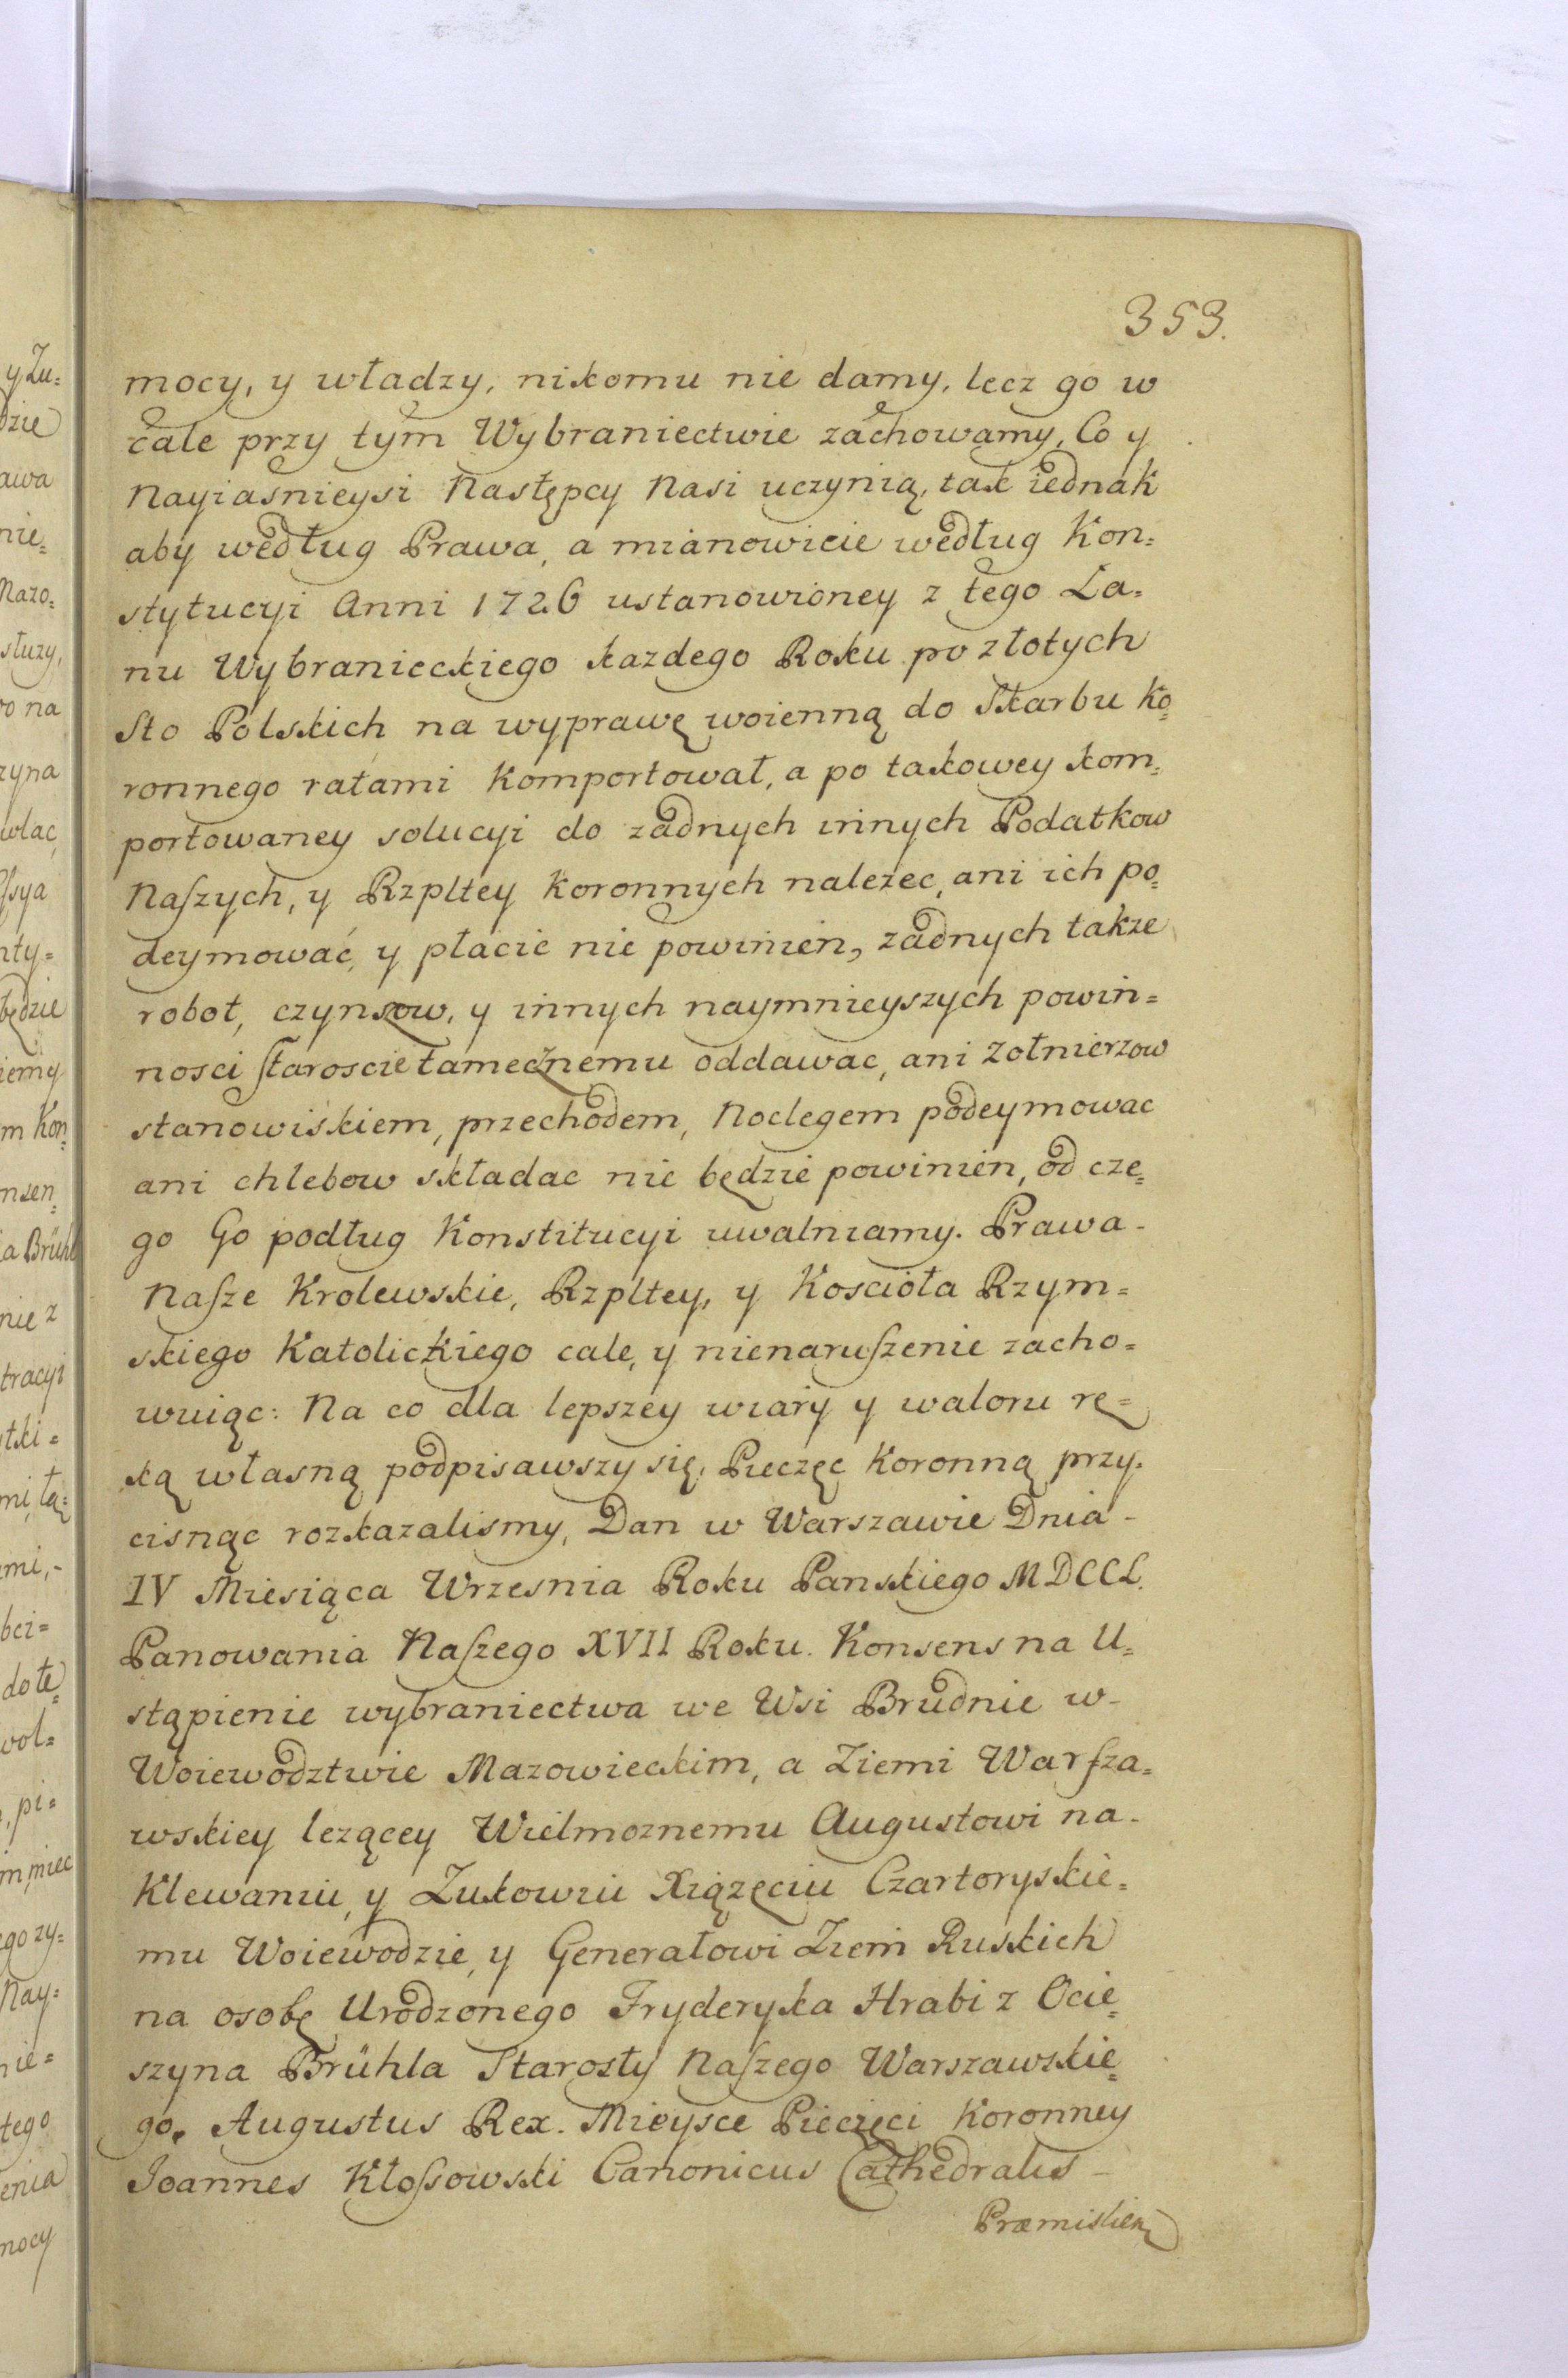 353.
mocy, y władzy, nikomu nie damy, lecz go w
cale przy tym Wybraniectwie zachowamy, Co y
Nayiasnieysi Następcy Nasi uczynią, tak iednak
aby według Prawa, a mianowicie według Kon=
stytucyi Anni 1726 ustanowioney z tego Ła=
nu Wybranieckiego kazdego Roku po złotych
Sto Polskich na wyprawę woienną do Skarbu Ko=
ronnego ratami Komportował, a po takowey kom=
portowaney solucyi do zadnych innych Podatkow
Naszych, y Rzpltey Koronnych nalezec, ani ich po=
deymować, y płacic nie powinien, zadnych takze
robot, czynszow, y innych naymnieyszych powin=
nosci Staroscie tamecznemu oddawac, ani Zołnierzow
stanowiskiem, przechodem, Noclegem podeymowac
ani chlebow składac nie będzie powinien, od cze=
go Go podług Konstitucyi uwalniamy. Prawa-
Nasze Krolewskie, Rzpltey, y Koscioła Rzym=
skiego Katolickiego cale, y nienaruszenie zacho=
wuiąc: Na co dla lepszey wiary y waloru rę=
ką własną podpisawszy się, Pieczęc Koronną przy=
cisnąc rozkazalismy, Dan w Warszawie Dnia-
IV Miesiąca Wrzesnia Roku Panskiego MDCCL.
Panowania Naszego XVII Roku. Konsens na U=
stąpienie wybraniectwa we Wsi Brudnie w-
Woiewodztwie Mazowieckim, a Ziemi Warsza=
wskiey lezącey Wielmoznemu Augustowi na-
Klewaniu, y Zukowiu Xiązęciu Czartoryskie=
mu Woiewodzie, y Generałowi Ziem Ruskich
na osobę Urodzonego Fryderyka Hrabi z Ocie=
szyna Brühla Starosty Naszego Warszawskie=
go. Augustus Rex. Mieysce Pieczęci Koronney
Joannes Kłossowski Canonicus Cathedralis-
Præmislien